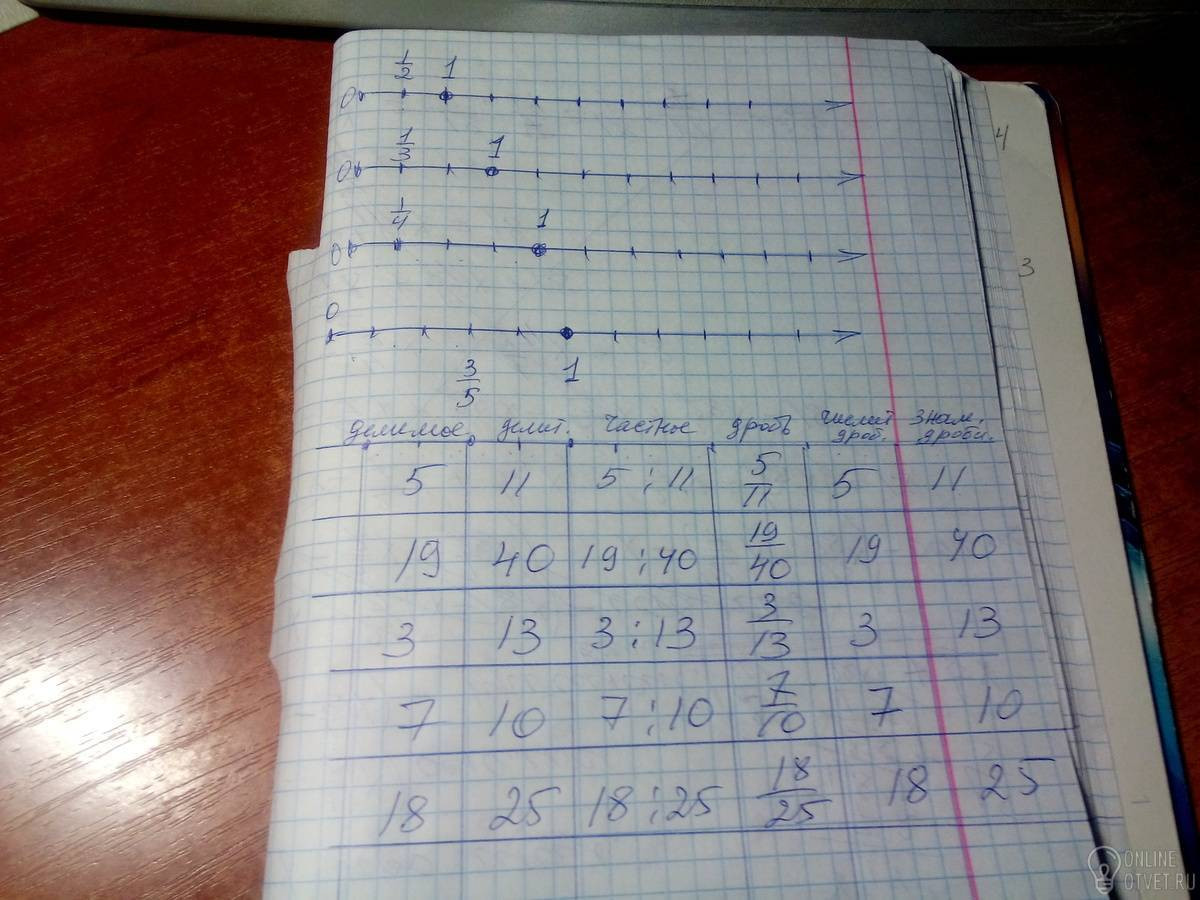 1/2 1
0
1/3 1
0
1/4 1
0
0
3/5 1
делимое делит. частное дробь числит дроб. знам. дроби.
5 11 5 : 11 5/11 5 11
19 40 19 : 40 19/40 19 40
3 13 3 : 13 3/13 3 13
7 10 7 : 10 7/10 7 10
18 25 18 : 25 18/25 18 25
4
3
ONLINE
OTVET.RU